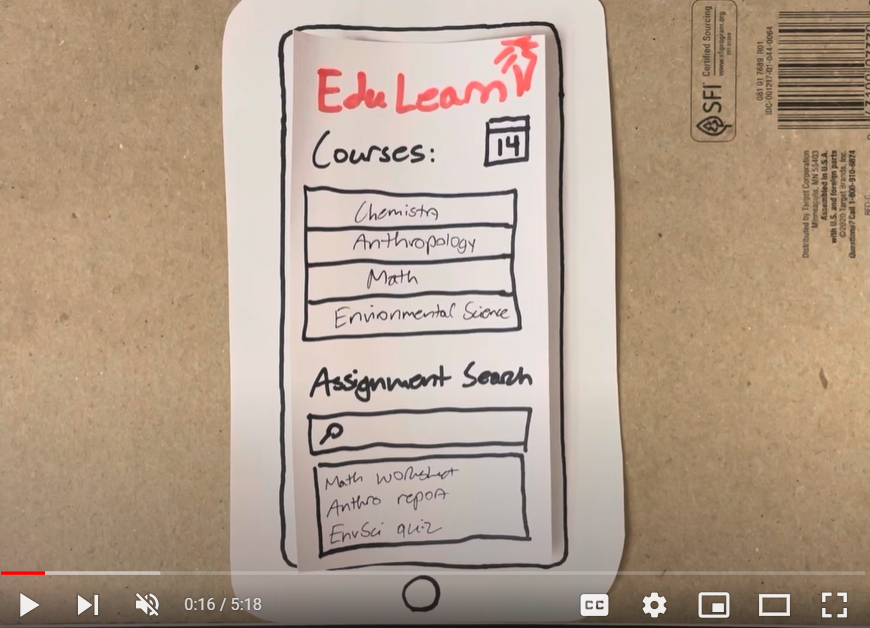 EduLearn
Courses:
14
Chemistry
Anthropology
Math
Environmental Science
Assignment Search
Math worksheet
Anthro report
EnvSci quiz
SFI
Certified Sourcing
www.sfiprogram.org
081 01 7689 R01
IDC-001297-01-044-0064
Distributed by Target Corporation
Minneapolis, MN 55403
Assembled in U.S.A.
with U.S. and foreign parts
©2020 Target Brands, Inc.
Questions? Call 1-800-910-6874
0:16 / 5:18
CC